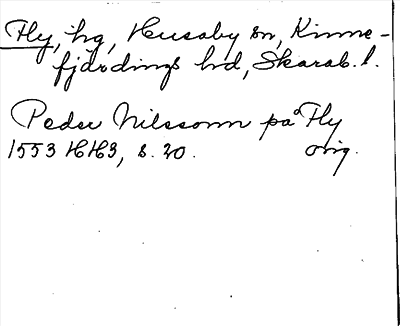 Fly, hg, Husaby sn, Kinne-
fjärdings hd, Skarab. l.
Peder Nilssonn på Fly
1553 HH3, s. 20. orig.